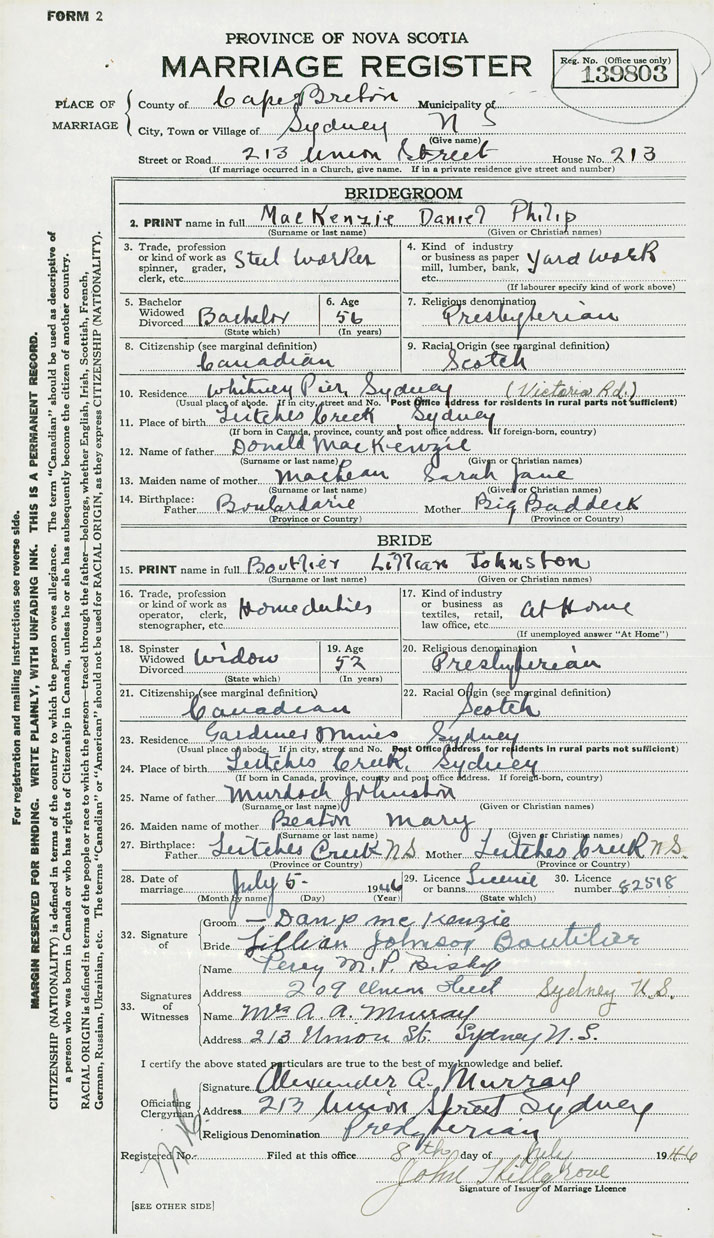 FORM 2
PROVINCE OF NOVA SCOTIA
MARRIAGE REGISTER
Reg. No. (Office use only)
139803
PLACE OF MARRIAGE
County of Cape Breton Municipality of
City, Town or Village of Sydney N S
(Give name)
Street or Road 213 Union Street House No. 213
(If marriage occurred in a Church, give name. If in a private residence give street and number)
BRIDEGROOM
2. PRINT name in full MacKenzie Daniel Philip
(Surname or last name) (Given or Christian names)
3. Trade, profession or kind of work as spinner, grader, clerk, etc. Steel Worker
4. Kind of industry or business as paper mill, lumber, bank, etc. Yard Work
(If labourer specify kind of work above)
5. Bachelor Widowed Divorced Bachelor
(State which)
6. Age 56
(In years)
7. Religious denomination Presbyterian
8. Citizenship (see marginal definition) Canadian
9. Racial Origin (see marginal definition) Scotch
10. Residence Whitney Pier, Sydney (Victoria Rd.)
(Usual place of abode. If in city, street and No. Post Office address for residents in rural parts not sufficient)
11. Place of birth Leitches Creek Sydney
(If born in Canada, province, county and post office address. If foreign-born, country)
12. Name of father Donald MacKenzie
(Surname or last name) (Given or Christian names)
13. Maiden name of mother MacLean Sarah Jane
(Surname or last name) (Given or Christian names)
14. Birthplace: Father Boulardarie Mother Big Baddeck
(Province or Country) (Province or Country)
BRIDE
15. PRINT name in full Boutlier Lillian Johnston
(Surname or last name) (Given or Christian names)
16. Trade, profession or kind of work as operator, clerk, stenographer, etc. Home duties
17. Kind of industry or business as textiles, retail, law office, etc. At Home
(If unemployed answer "At Home")
18. Spinster Widowed Divorced Widow
(State which)
19. Age 52
(In years)
20. Religious denomination Presbyterian
21. Citizenship (see marginal definition) Canadian
22. Racial Origin (see marginal definition) Scotch
23. Residence Gardiner Mines Sydney
(Usual place of abode. If in city, street and No. Post Office address for residents in rural parts not sufficient)
24. Place of birth Leitches Creek, Sydney
(If born in Canada, province, county and post office address. If foreign-born, country)
25. Name of father Murdoch Johnston
(Surname or last name) (Given or Christian names)
26. Maiden name of mother Beaton Mary
(Surname or last name) (Given or Christian names)
27. Birthplace: Father Leitches Creek N.S. Mother Leitches Creek N.S.
(Province or Country) (Province or Country)
28. Date of marriage July 5 1946
(Month by name) (Day) (Year)
29. Licence or banns License
(State which)
30. Licence number 82518
32. Signature of
Groom – Dan P McKenzie
Bride Lillian Johnson Boutilier
33. Signatures of Witnesses
Name Percy M.P. Bishop
Address 209 Union Street Sydney N.S.
Name Mrs A. A. Murray
Address 213 Union St. Sydney N.S.
I certify the above stated particulars are true to the best of my knowledge and belief.
Officiating Clergyman
Signature Alexander A. Murray
Address 213 Union Street Sydney
Religious Denomination Presbyterian
Registered No. Filed at this office 8th day of July 1946
John
Signature of Issuer of Marriage Licence
[SEE OTHER SIDE]
For registration and mailing instructions see reverse side.
MARGIN RESERVED FOR BINDING. WRITE PLAINLY, WITH UNFADING INK. THIS IS A PERMANENT RECORD.
CITIZENSHIP (NATIONALITY) is defined in terms of the country to which the person owes allegiance. The term "Canadian" should be used as descriptive of
a person who was born in Canada or who has rights of Citizenship in Canada, unless he or she has subsequently become the citizen of another country.
RACIAL ORIGIN is defined in terms of the people or race to which the person—traced through the father—belongs, whether English, Irish, Scottish, French,
German, Russian, Ukrainian, etc. The terms "Canadian" or "American" should not be used for RACIAL ORIGIN, as they express CITIZENSHIP (NATIONALITY).